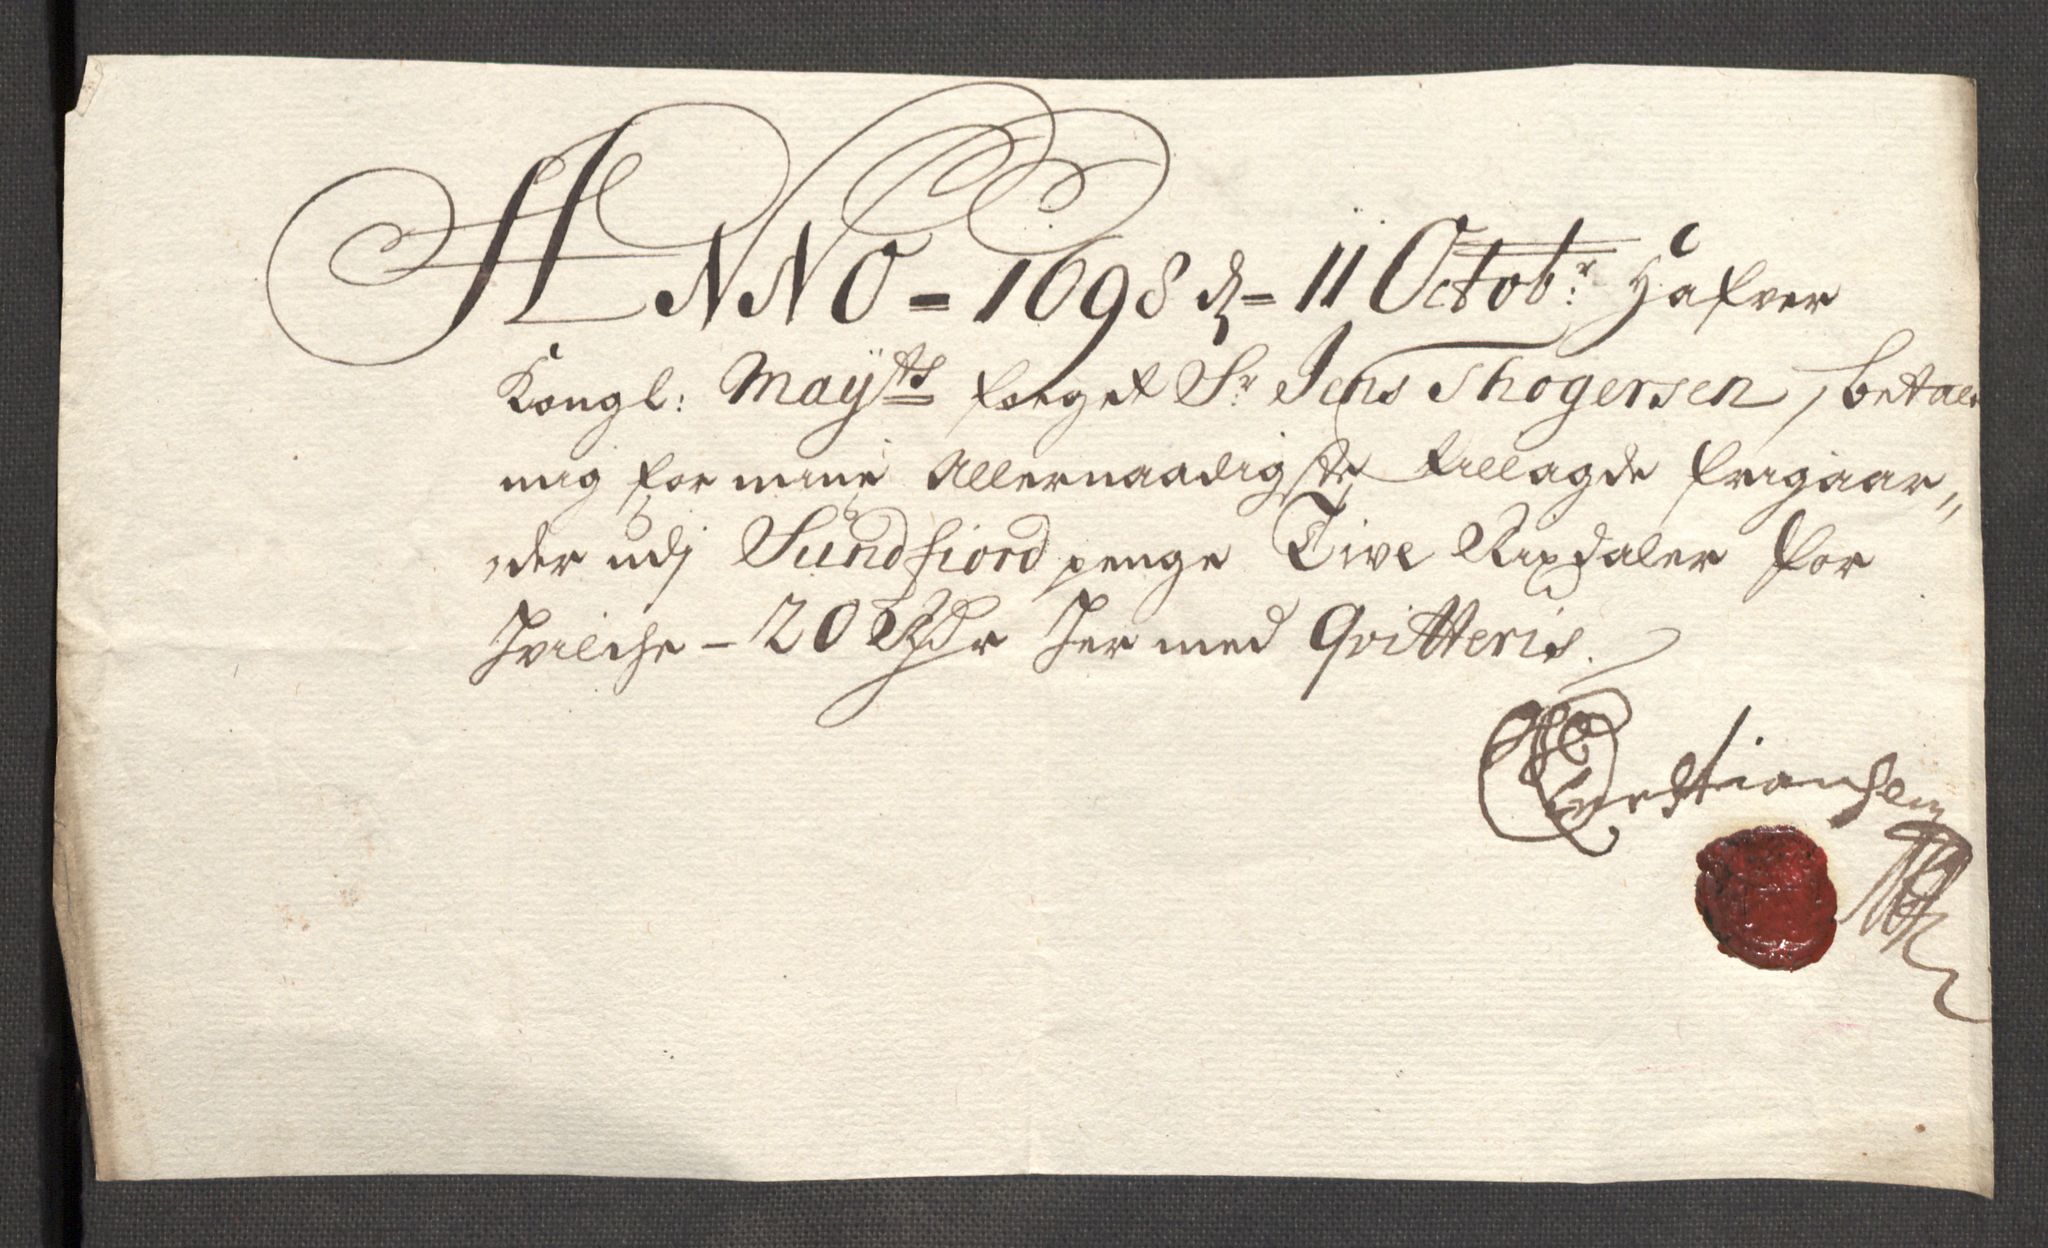 ANNO = 1698 d = 11 Octobr: Hafver
Kongl: Mayts foeget Sr Jens Thogersen, betalt
mig for mine Allernaadigste tillagde frigaar„
der udj Sundfiord penge Tive Rixdaler for
hvilche – 20 Rdr hermed Qvitteris.
Christiansen